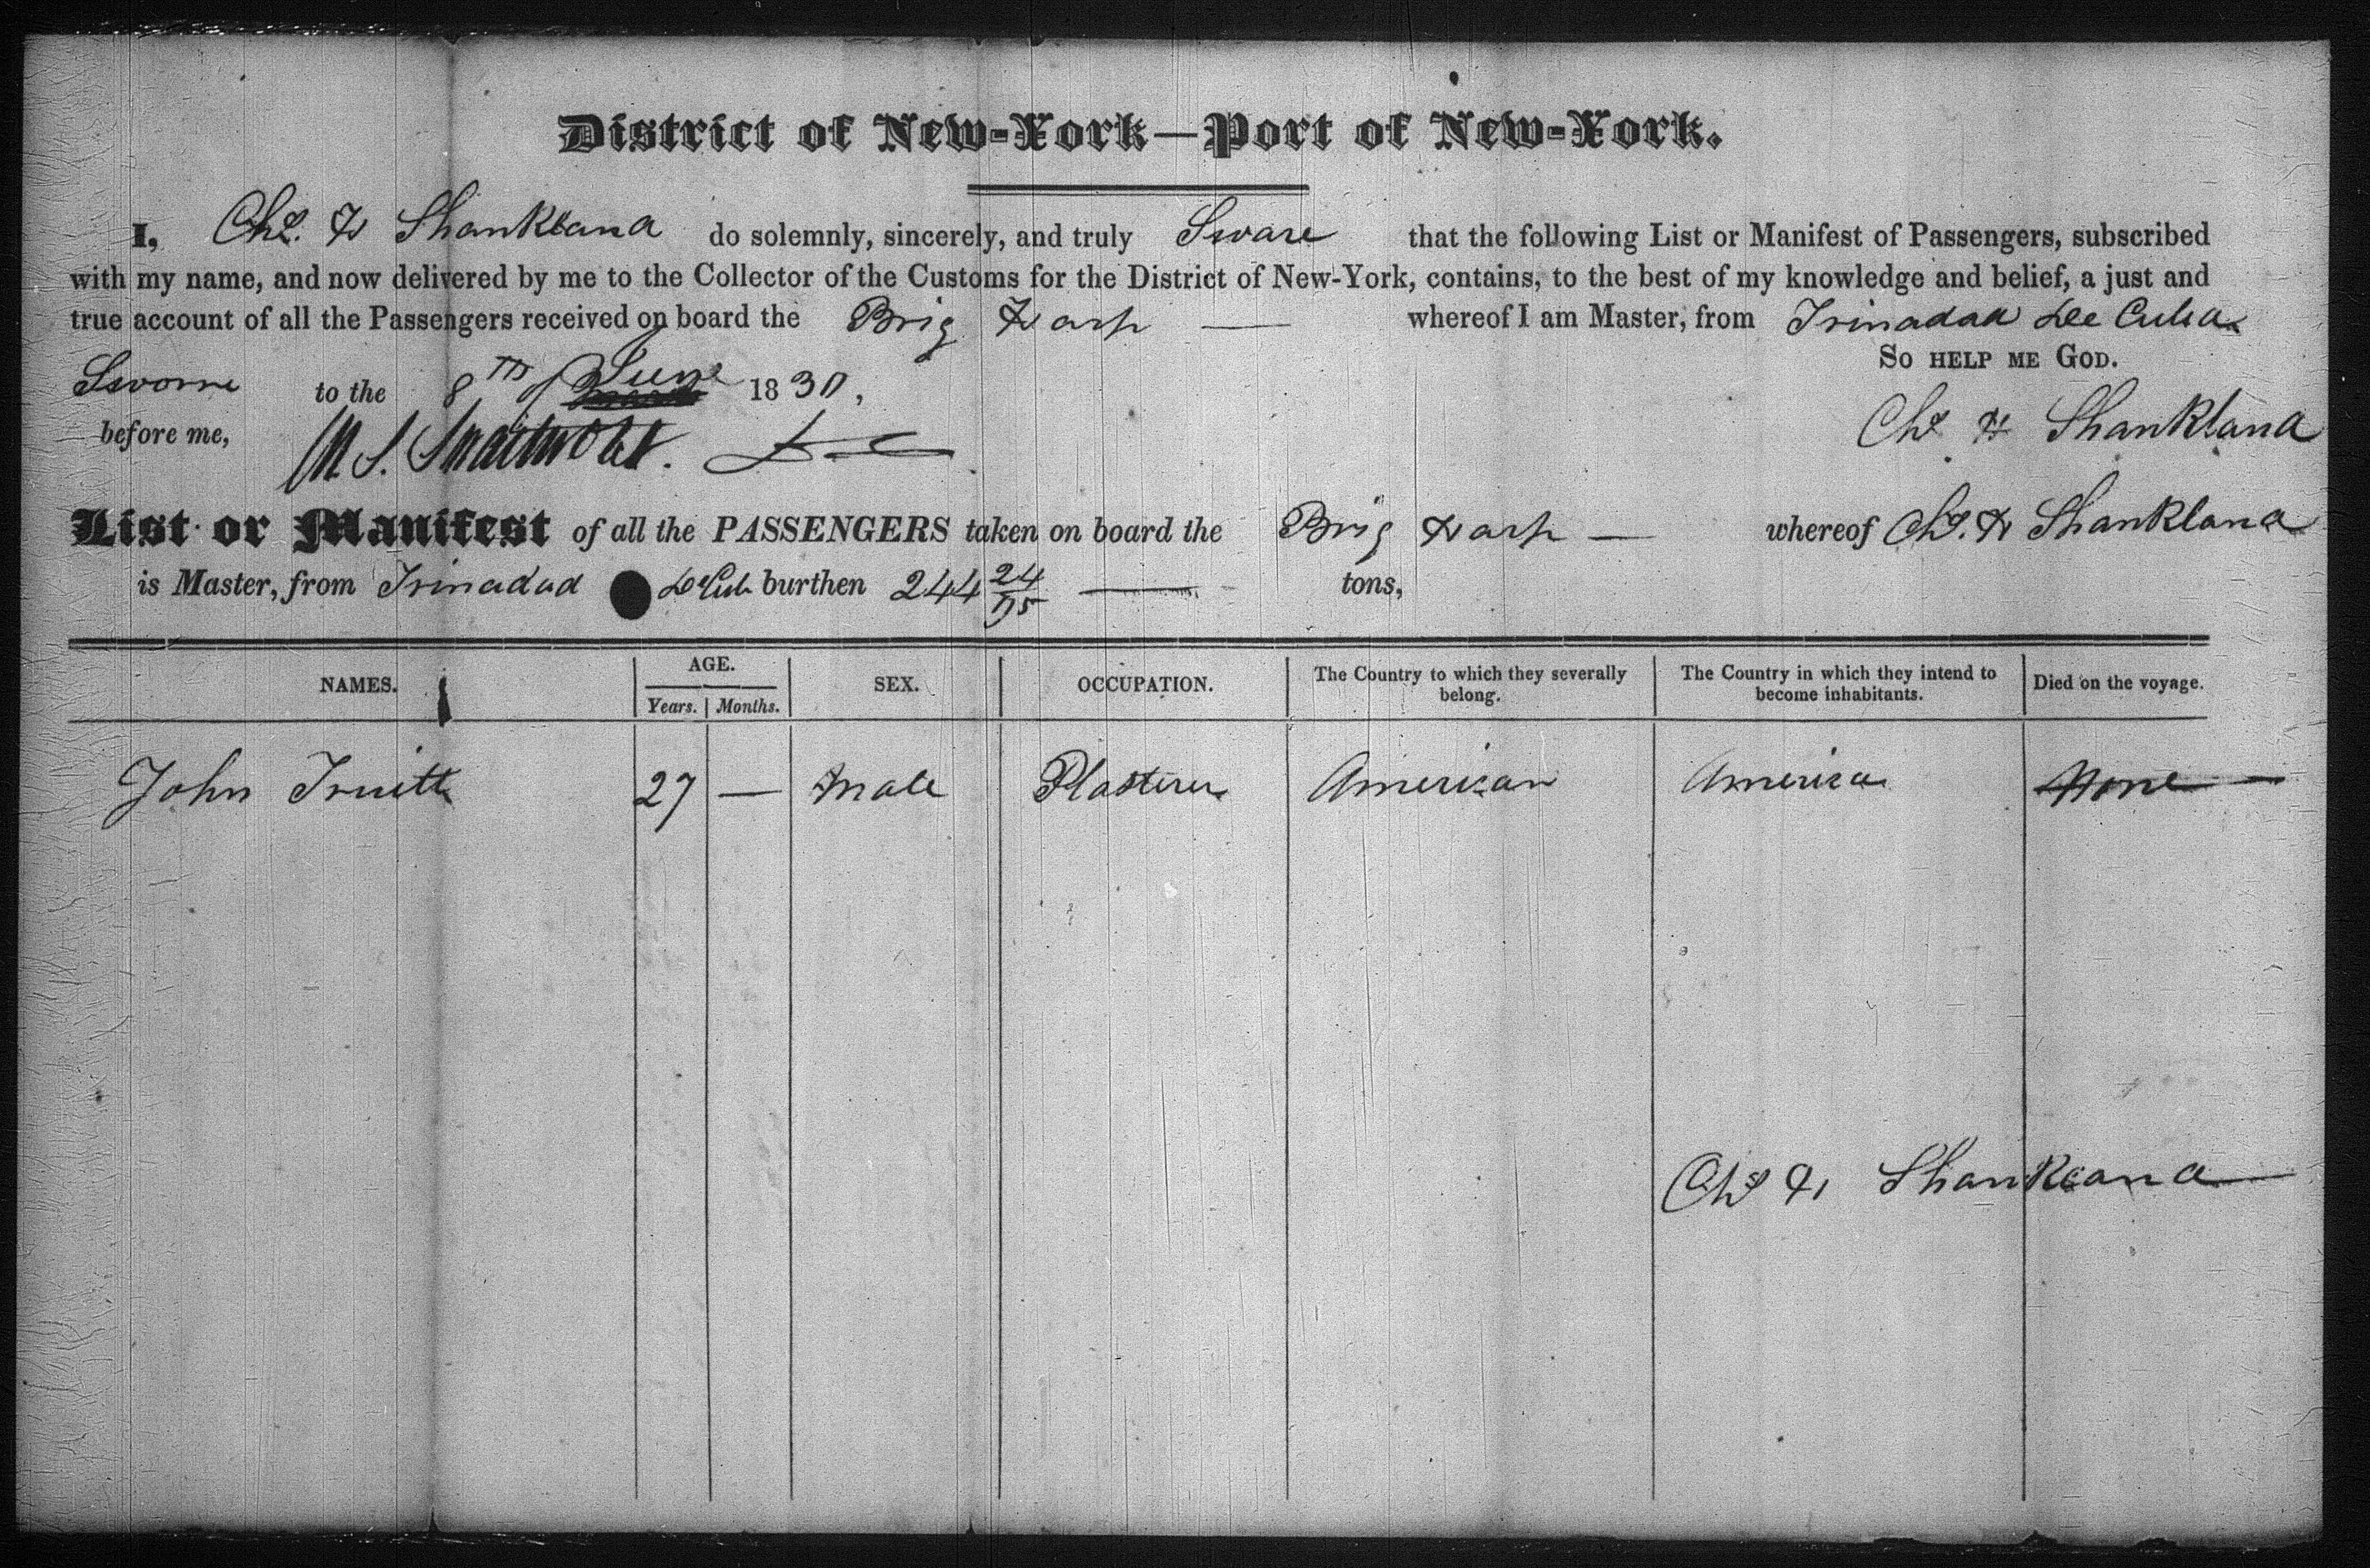 District of New-York—Port of New-York.
I, Chs. H Shankland do solemnly, sincerely, and truly Sware that the following List or Manifest of Passengers, subscribed
with my name, and now delivered by me to the Collector of the Customs for the District of New-York, contains, to the best of my knowledge and belief, a just and
true account of all the Passengers received on board the Brig Harp — whereof I am Master, from Trinadad De Cuba
So help me God.
Sworne to the 8th of June 1830,
before me,
Chs H Shankland
List or Manifest of all the PASSENGERS taken on board the Brig Harp — whereof Chs. H Shankland
is Master, from Trinadad burthen 244 24/95 — tons,
NAMES. AGE. SEX. OCCUPATION. The Country to which they severally belong. The Country in which they intend to become inhabitants. Died on the voyage.
Years. Months.
John Truitt 27 — Male Plasterer American America None —
Chs H Shankland